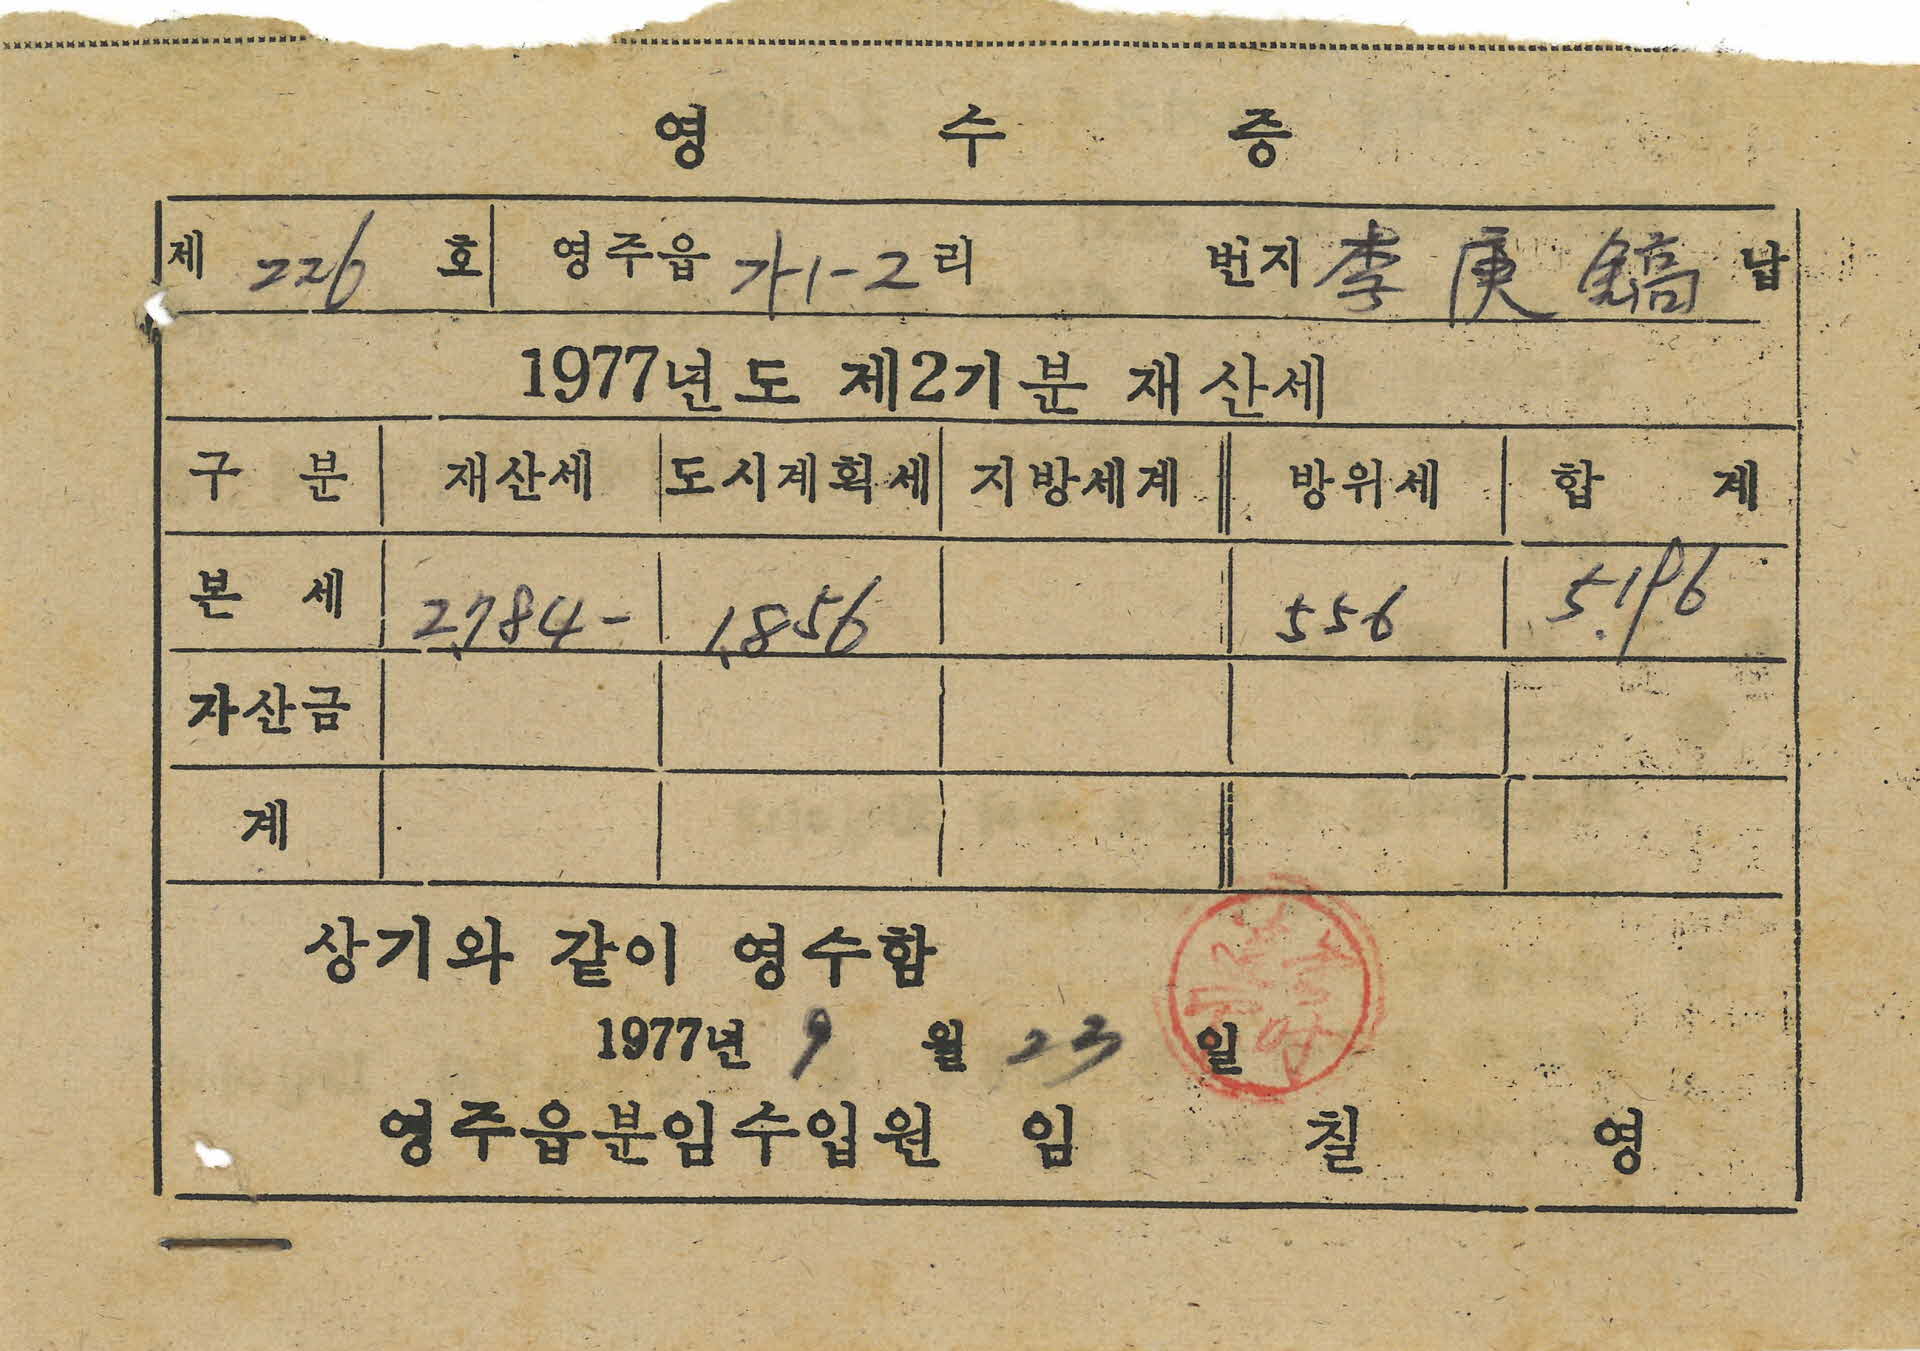 영 수 증
제 226 호 영주읍 가1-2 리 번지 李庚鎬 납
1977년도 제2기분 재산세
구 분 재산세 도시계획세 지방세계 방위세 합 계
본 세 2,784- 1,856 556 5.196
자산금
계
상기와 같이 영수함
1977년 9 월 23 일
영주읍분임수입원 임 칠 영